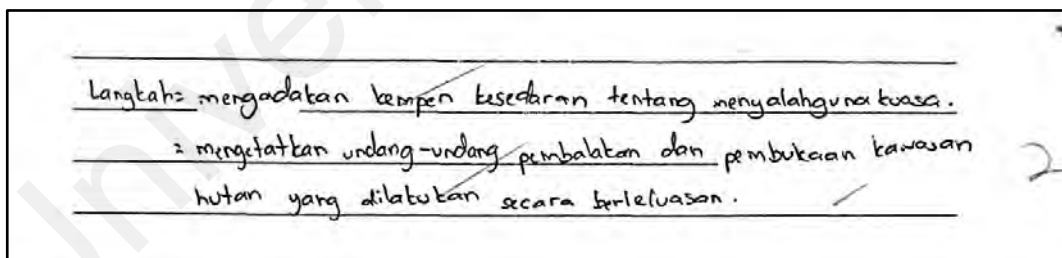 Langkah: mengadakan kempen kesedaran tentang menyalahguna kuasa.
: mengetatkan undang-undang pembalakan dan pembukaan kawasan
hutan yang dilakukan secara berleluasan.
2